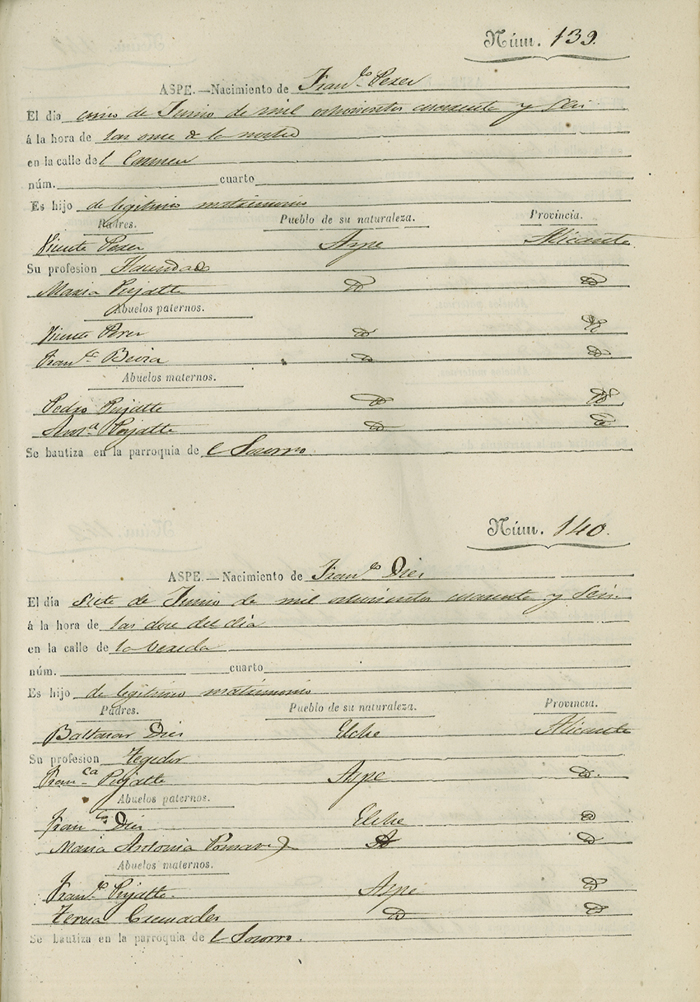 Núm. 139.
ASPE.—Nacimiento de Fran.co Perez
El dia cinco de Junio de mil ochocientos cuarenta y seis
á la hora de las once de la noche
en la calle del Carmen
núm. cuarto
Es hijo de legitimo matrimonio
Padres. Pueblo de su naturaleza. Provincia.
Vicente Perez Aspe Alicante
Su profesion Hacendado
Maria Pujalte D D
Abuelos paternos.
Vicente Perez D D
Fran.ca D D
Abuelos maternos.
Pedro Pujalte D D
Ant.a Pujalte D D
Se bautiza en la parroquia de l Socorro
Núm. 140.
ASPE.—Nacimiento de Fran.co Dies
El dia siete de Junio de mil ochocientos cuarenta y seis.
á la hora de las doce del dia
en la calle de la vereda
núm. cuarto
Es hijo de legitimo matrimonio
Padres. Pueblo de su naturaleza. Provincia.
Baltasar Dies Elche Alicante
Su profesion Tegedor
Fran.ca Pujalte Aspe D.
Abuelos paternos.
Fran.co Dies Elche D
Maria Antonia Pomares D D
Abuelos maternos.
Fran.co Pujalte. Aspe D
Teresa Cremades D D
Se bautiza en la parroquia de l Socorro.